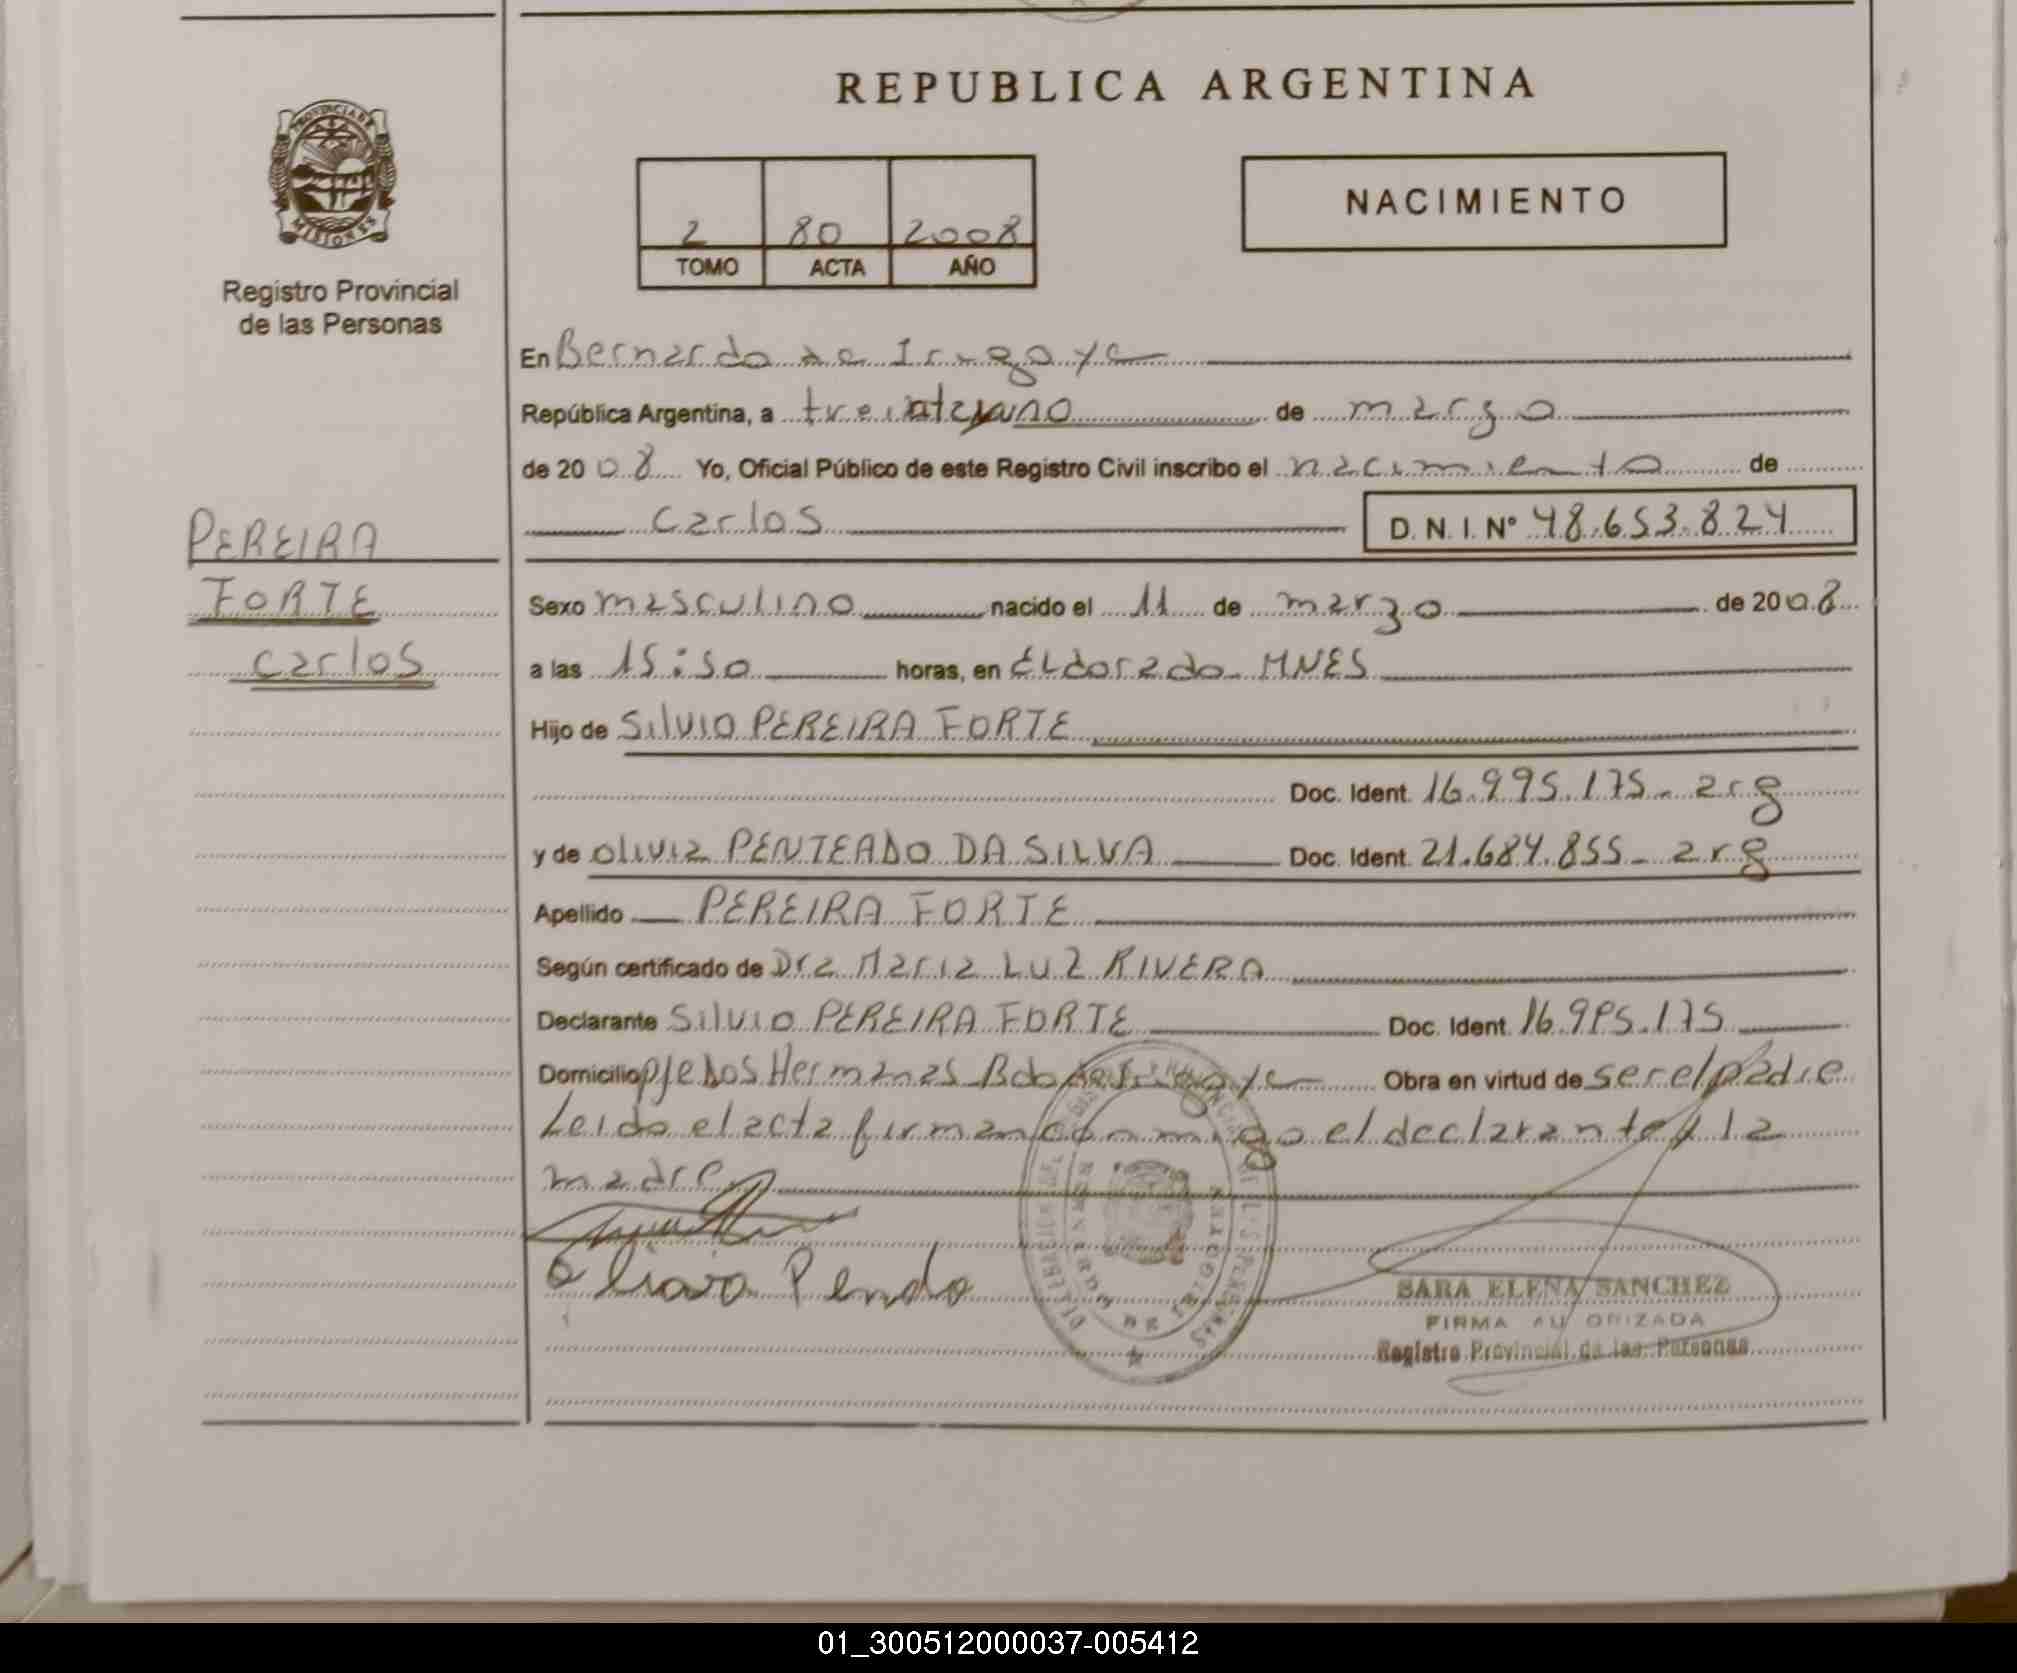 REPUBLICA ARGENTINA
PROVINCIA DE
MISIONES
Registro Provincial
de las Personas
2 80 2008
TOMO ACTA AÑO
NACIMIENTO
En Bernardo de Irigoye
República Argentina, a treintayuno de marzo
de 20 08 Yo, Oficial Público de este Registro Civil inscribo el nacimiento de
Carlos D. N. I. N° 48.653.824
PEREIRA
FORTE
Carlos
Sexo masculino nacido el 11 de marzo de 20 08
a las 15:50 horas, en ELdorado MNES
Hijo de Silvio PEREIRA FORTE
Doc. Ident. 16.995.175- arg
y de olivia PENTEADO DA SILVA Doc. Ident. 21.684.855- arg
Apellido PEREIRA FORTE
Según certificado de Dra Maria LUZ RIVERA
Declarante Silvio PEREIRA FORTE Doc. Ident. 16.995.175
Domicilio Pje Dos Hermanas Bdo de Irigoye Obra en virtud de ser el padre
Leida el acta firman conmigo el declarante y la
madre
Oliava Pendo
SARA ELENA SANCHEZ
FIRMA AUTORIZADA
Registro Provincial de las Personas
01_300512000037-005412